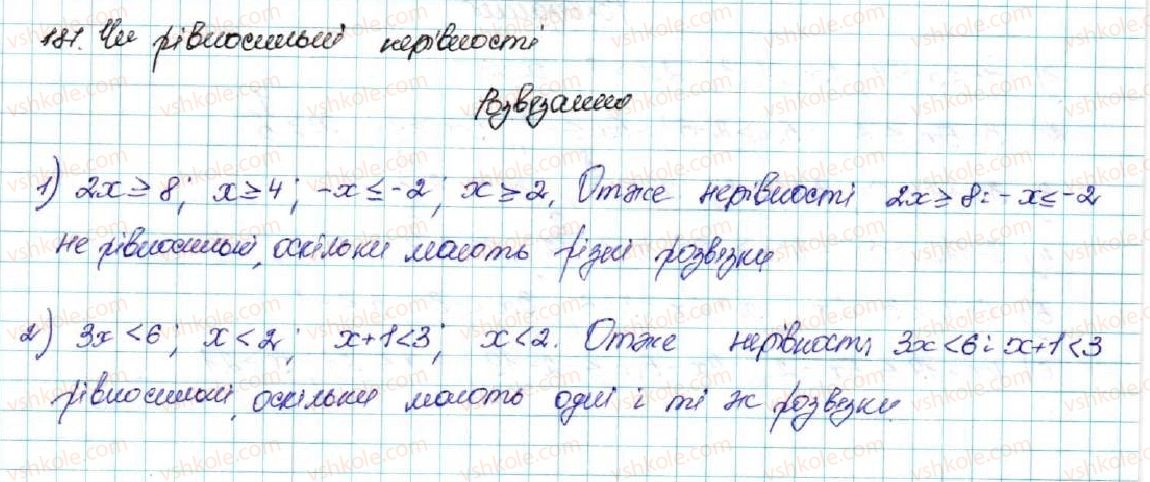 181. Чи рівносильні нерівності
Розвязання
1) 2x ≥ 8; x ≥ 4; -x ≤ -2; x ≥ 2. Отже нерівності 2x ≥ 8 і -x ≤ -2
не рівносильні, оскільки мають різні розвязки
2) 3x < 6; x < 2; x+1 < 3; x < 2. Отже нерівності 3x < 6 і x+1 < 3
рівносильні, оскільки мають одні і ті ж розвязки.